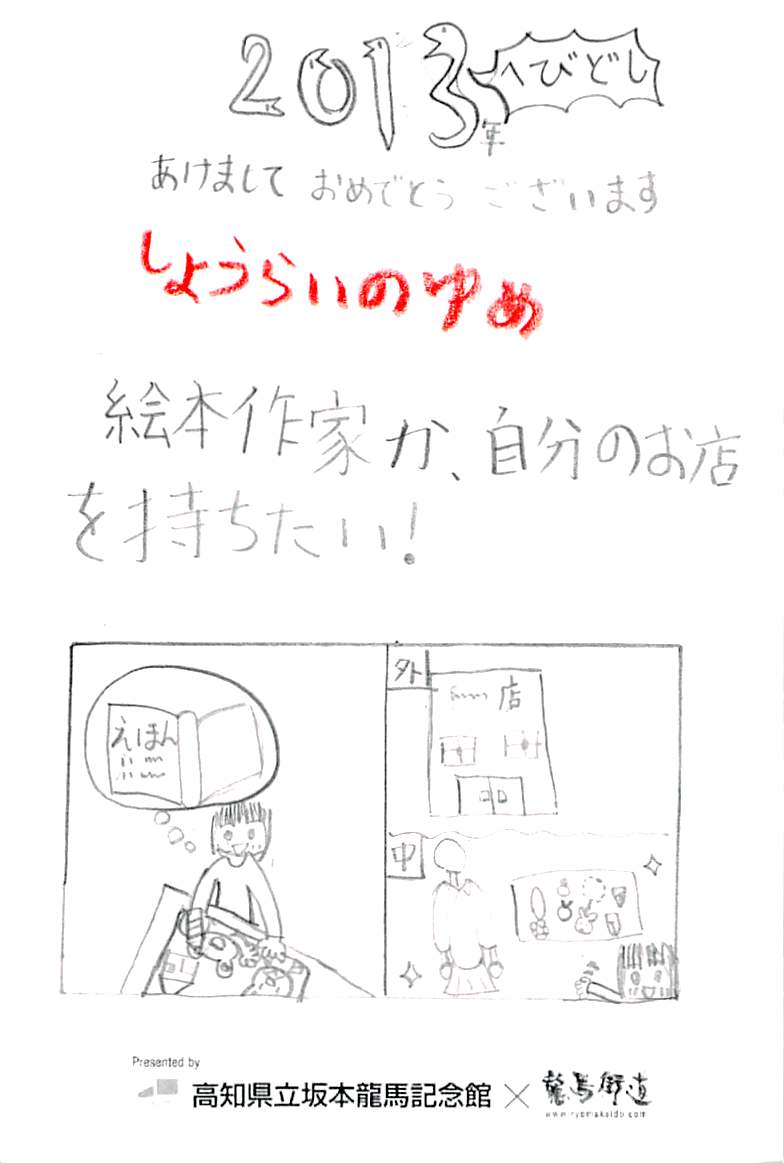 2013年 へびどし
あけまして おめでとう ございます
しょうらいのゆめ
絵本作家か、自分のお店
を持ちたい！
えほん
外
店
中
Presented by
高知県立坂本龍馬記念館 × 龍馬街道
www.ryomakaido.com